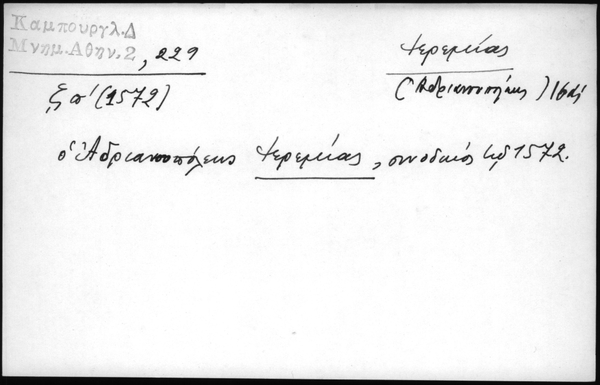 Καμπουργλ.Δ
Μνημ.Αθην.2, 229
ζπ' (1572)
Ἱερεμίας
(Ἀδριανουπόλεως) 16
ὁ Ἀδριανουπόλεως Ἱερεμίας, συνοδικός 1572.